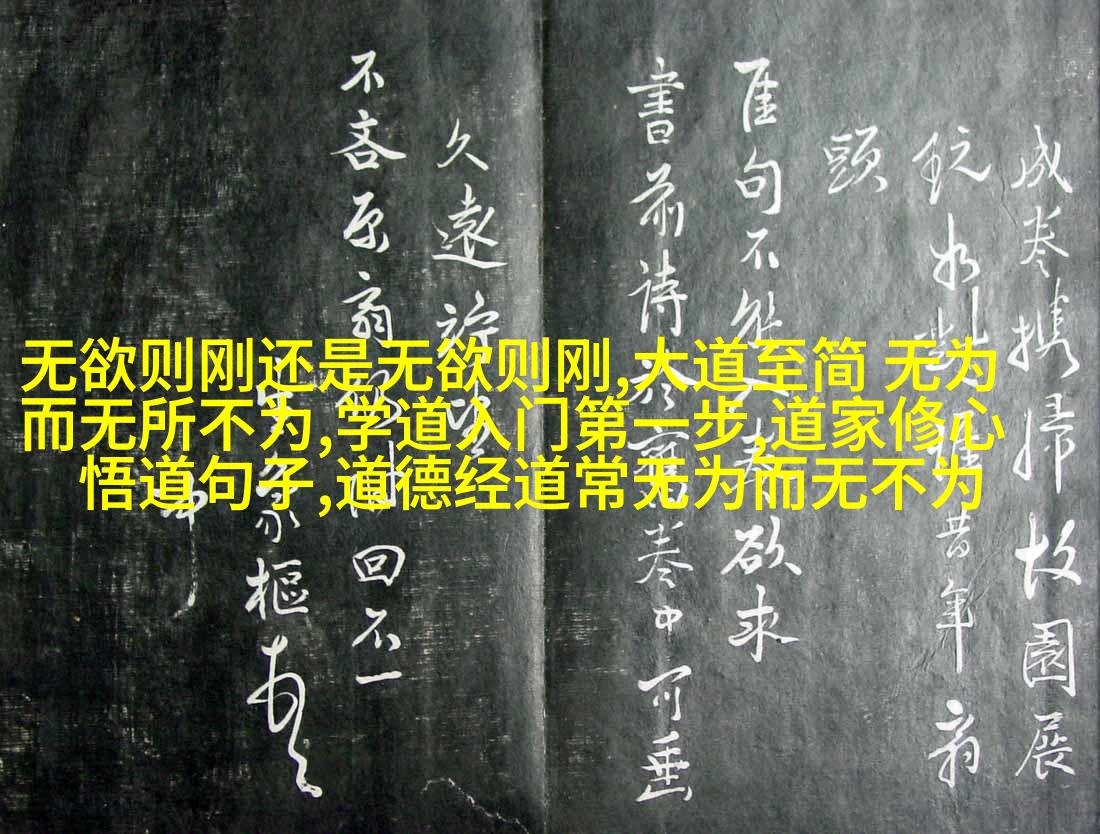 无欲则刚还是无欲则刚,大道至简 无为
而无所不为,学道入门第一步,道家修心
悟道句子,道德经道常无为而无不为
成卷携歸故園展
玩如對昔年翁
頭
句不能欲求
書前诗於卷中可垂
久遠
不吝原翁回不一
家樞